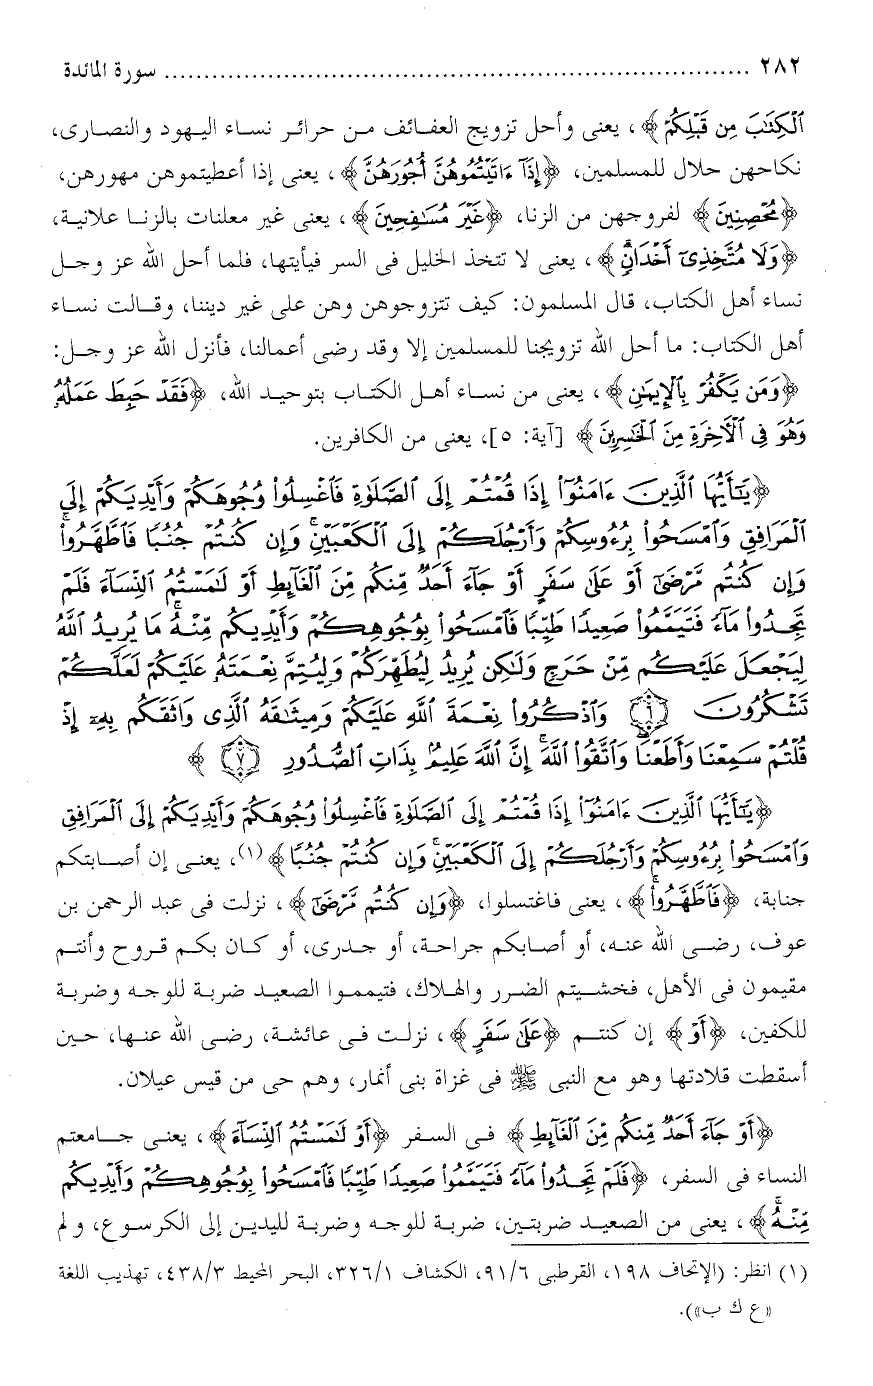 ٢٨٢ .......................................................................... سورة المائدة
ٱلْكِتَٰبَ مِن قَبْلِكُمْ﴾، يعنى وأحل تزويج العفائف من حرائر نساء اليهود والنصارى،
نكاحهن حلال للمسلمين، ﴿إِذَآ ءَاتَيْتُمُوهُنَّ أُجُورَهُنَّ﴾، يعنى إذا أعطيتموهن مهورهن،
﴿مُحْصِنِينَ﴾ لفروجهن من الزنا، ﴿غَيْرَ مُسَٰفِحِينَ﴾، يعنى غير معلنات بالزنا علانية،
﴿وَلَا مُتَّخِذِىٓ أَخْدَانٍ﴾، يعنى لا تتخذ الخليل فى السر فيأيتها، فلما أحل الله عز وجل
نساء أهل الكتاب، قال المسلمون: كيف تتزوجوهن وهن على غير ديننا، وقالت نساء
أهل الكتاب: ما أحل الله تزويجنا للمسلمين إلا وقد رضى أعمالنا، فأنزل الله عز وجل:
﴿وَمَن يَكْفُرْ بِٱلْإِيمَٰنِ﴾، يعنى من نساء أهل الكتاب بتوحيد الله، ﴿فَقَدْ حَبِطَ عَمَلُهُۥ
وَهُوَ فِى ٱلْآخِرَةِ مِنَ ٱلْخَٰسِرِينَ﴾ [آية: ٥]، يعنى من الكافرين.
﴿يَٰٓأَيُّهَا ٱلَّذِينَ ءَامَنُوٓا۟ إِذَا قُمْتُمْ إِلَى ٱلصَّلَوٰةِ فَٱغْسِلُوا۟ وُجُوهَكُمْ وَأَيْدِيَكُمْ إِلَى
ٱلْمَرَافِقِ وَٱمْسَحُوا۟ بِرُءُوسِكُمْ وَأَرْجُلَكُمْ إِلَى ٱلْكَعْبَيْنِ ۚ وَإِن كُنتُمْ جُنُبًا فَٱطَّهَّرُوا۟ ۚ
وَإِن كُنتُم مَّرْضَىٰٓ أَوْ عَلَىٰ سَفَرٍ أَوْ جَآءَ أَحَدٌ مِّنكُم مِّنَ ٱلْغَآئِطِ أَوْ لَٰمَسْتُمُ ٱلنِّسَآءَ فَلَمْ
تَجِدُوا۟ مَآءً فَتَيَمَّمُوا۟ صَعِيدًا طَيِّبًا فَٱمْسَحُوا۟ بِوُجُوهِكُمْ وَأَيْدِيكُم مِّنْهُ ۚ مَا يُرِيدُ ٱللَّهُ
لِيَجْعَلَ عَلَيْكُم مِّنْ حَرَجٍ وَلَٰكِن يُرِيدُ لِيُطَهِّرَكُمْ وَلِيُتِمَّ نِعْمَتَهُۥ عَلَيْكُمْ لَعَلَّكُمْ
تَشْكُرُونَ ٦ وَٱذْكُرُوا۟ نِعْمَةَ ٱللَّهِ عَلَيْكُمْ وَمِيثَٰقَهُ ٱلَّذِى وَاثَقَكُم بِهِۦٓ إِذْ
قُلْتُمْ سَمِعْنَا وَأَطَعْنَا ۖ وَٱتَّقُوا۟ ٱللَّهَ ۚ إِنَّ ٱللَّهَ عَلِيمٌۢ بِذَاتِ ٱلصُّدُورِ ٧﴾
﴿يَٰٓأَيُّهَا ٱلَّذِينَ ءَامَنُوٓا۟ إِذَا قُمْتُمْ إِلَى ٱلصَّلَوٰةِ فَٱغْسِلُوا۟ وُجُوهَكُمْ وَأَيْدِيَكُمْ إِلَى ٱلْمَرَافِقِ
وَٱمْسَحُوا۟ بِرُءُوسِكُمْ وَأَرْجُلَكُمْ إِلَى ٱلْكَعْبَيْنِ ۚ وَإِن كُنتُمْ جُنُبًا﴾(١)، يعنى إن أصابتكم
جنابة، ﴿فَٱطَّهَّرُوا۟ ۚ﴾، يعنى فاغتسلوا، ﴿وَإِن كُنتُم مَّرْضَىٰٓ﴾، نزلت فى عبد الرحمن بن
عوف، رضى الله عنه، أو أصابكم جراحة، أو جدرى، أو كان بكم قروح وأنتم
مقيمون فى الأهل، فخشيتم الضرر والهلاك، فتيمموا الصعيد ضربة للوجه وضربة
للكفين، ﴿أَوْ﴾ إن كنتم ﴿عَلَىٰ سَفَرٍ﴾، نزلت فى عائشة، رضى الله عنها، حين
أسقطت قلادتها وهو مع النبى ﷺ فى غزاة بنى أنمار، وهم حى من قيس عيلان.
﴿أَوْ جَآءَ أَحَدٌ مِّنكُم مِّنَ ٱلْغَآئِطِ﴾ فى السفر ﴿أَوْ لَٰمَسْتُمُ ٱلنِّسَآءَ﴾، يعنى جامعتم
النساء فى السفر، ﴿فَلَمْ تَجِدُوا۟ مَآءً فَتَيَمَّمُوا۟ صَعِيدًا طَيِّبًا فَٱمْسَحُوا۟ بِوُجُوهِكُمْ وَأَيْدِيكُم
مِّنْهُ ۚ﴾، يعنى من الصعيد ضربتين، ضربة للوجه وضربة لليدين إلى الكرسوع، ولم
(١) انظر: (الإتحاف ١٩٨، القرطبى ٩١/٦، الكشاف ٣٢٦/١، البحر المحيط ٤٣٨/٣، تهذيب اللغة
«ع ك ب»).